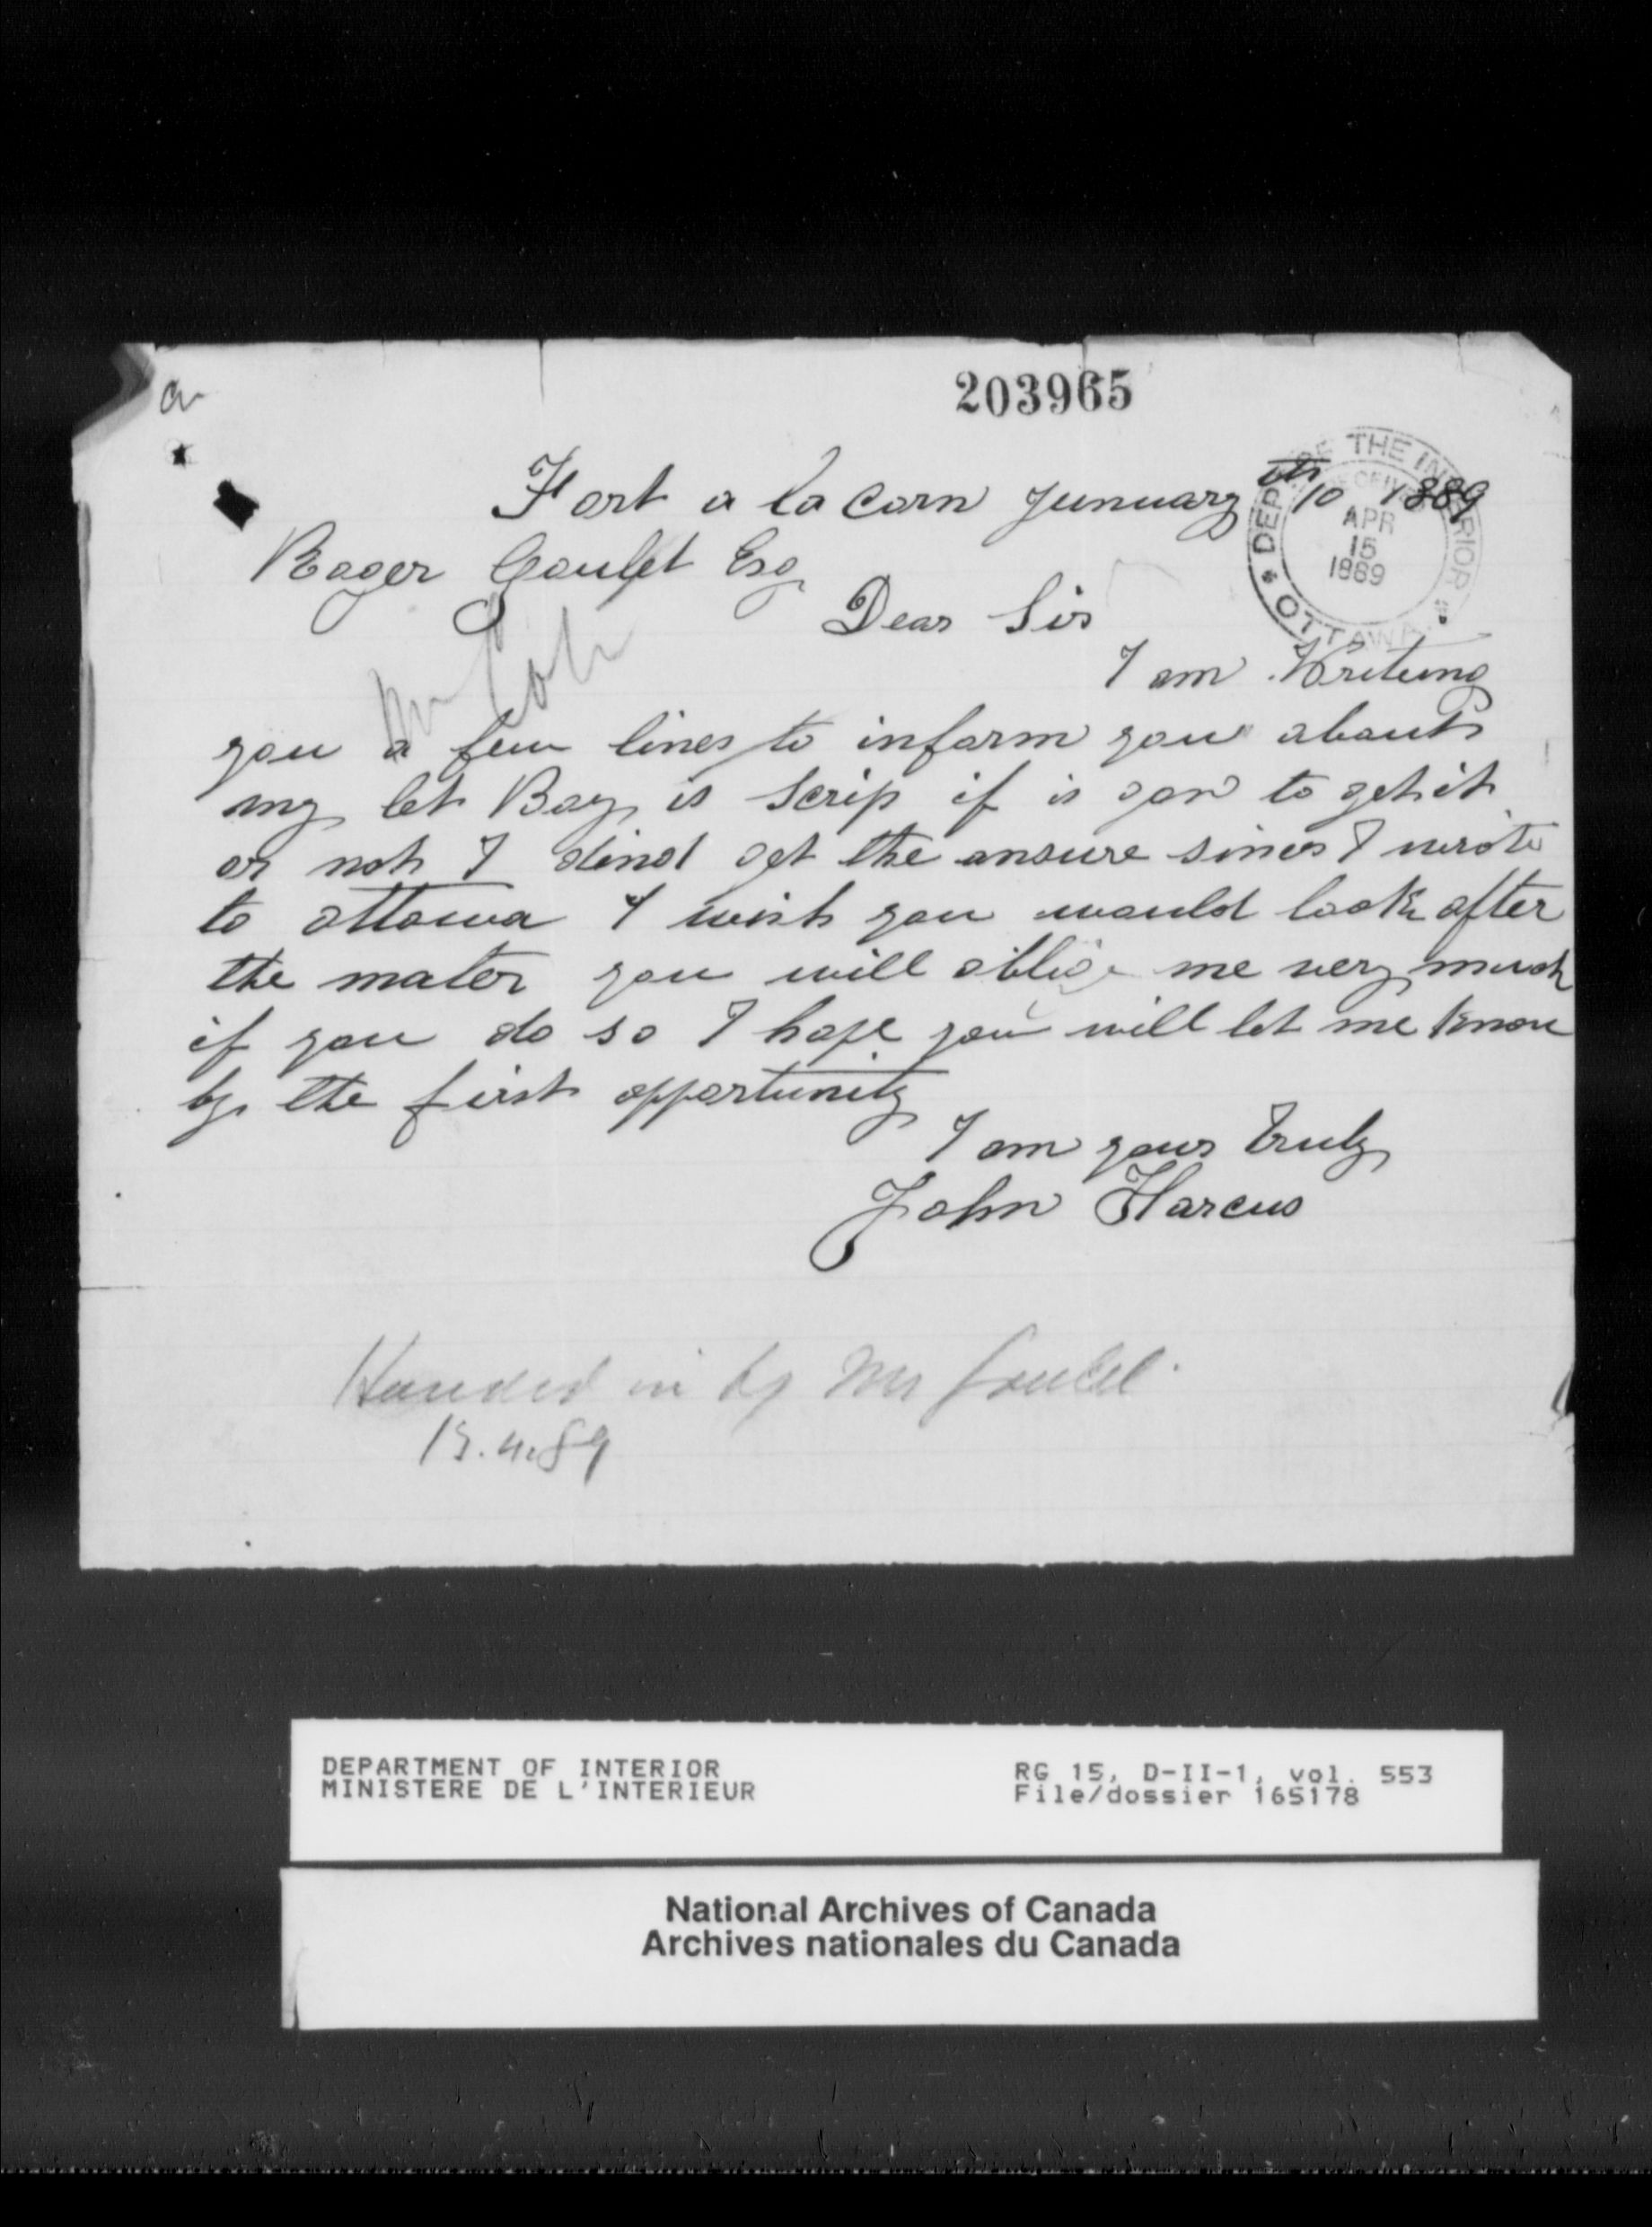 203965
DEPT. OF THE INTERIOR
RECEIVED
APR
15
1889
OTTAWA
Fort a la Corn Junuary 10th 1889
Roger Goulet Esq
Dear Sir
I am Writeing
you a few lines to inform you about
my let Boy is Scrip if is gon to get it
or not I dind get the ansure sinces I wrote
to ottawa I wish you would look after
the mater you will oblige me very much
if you do so I hope you will let me know
by the first opportunity
I am yours Truly
John Harcus
Handed in by Mr Goulet
15.4.89
DEPARTMENT OF INTERIOR
MINISTERE DE L'INTERIEUR
RG 15, D-II-1, vol. 553
File/dossier 165178
National Archives of Canada
Archives nationales du Canada